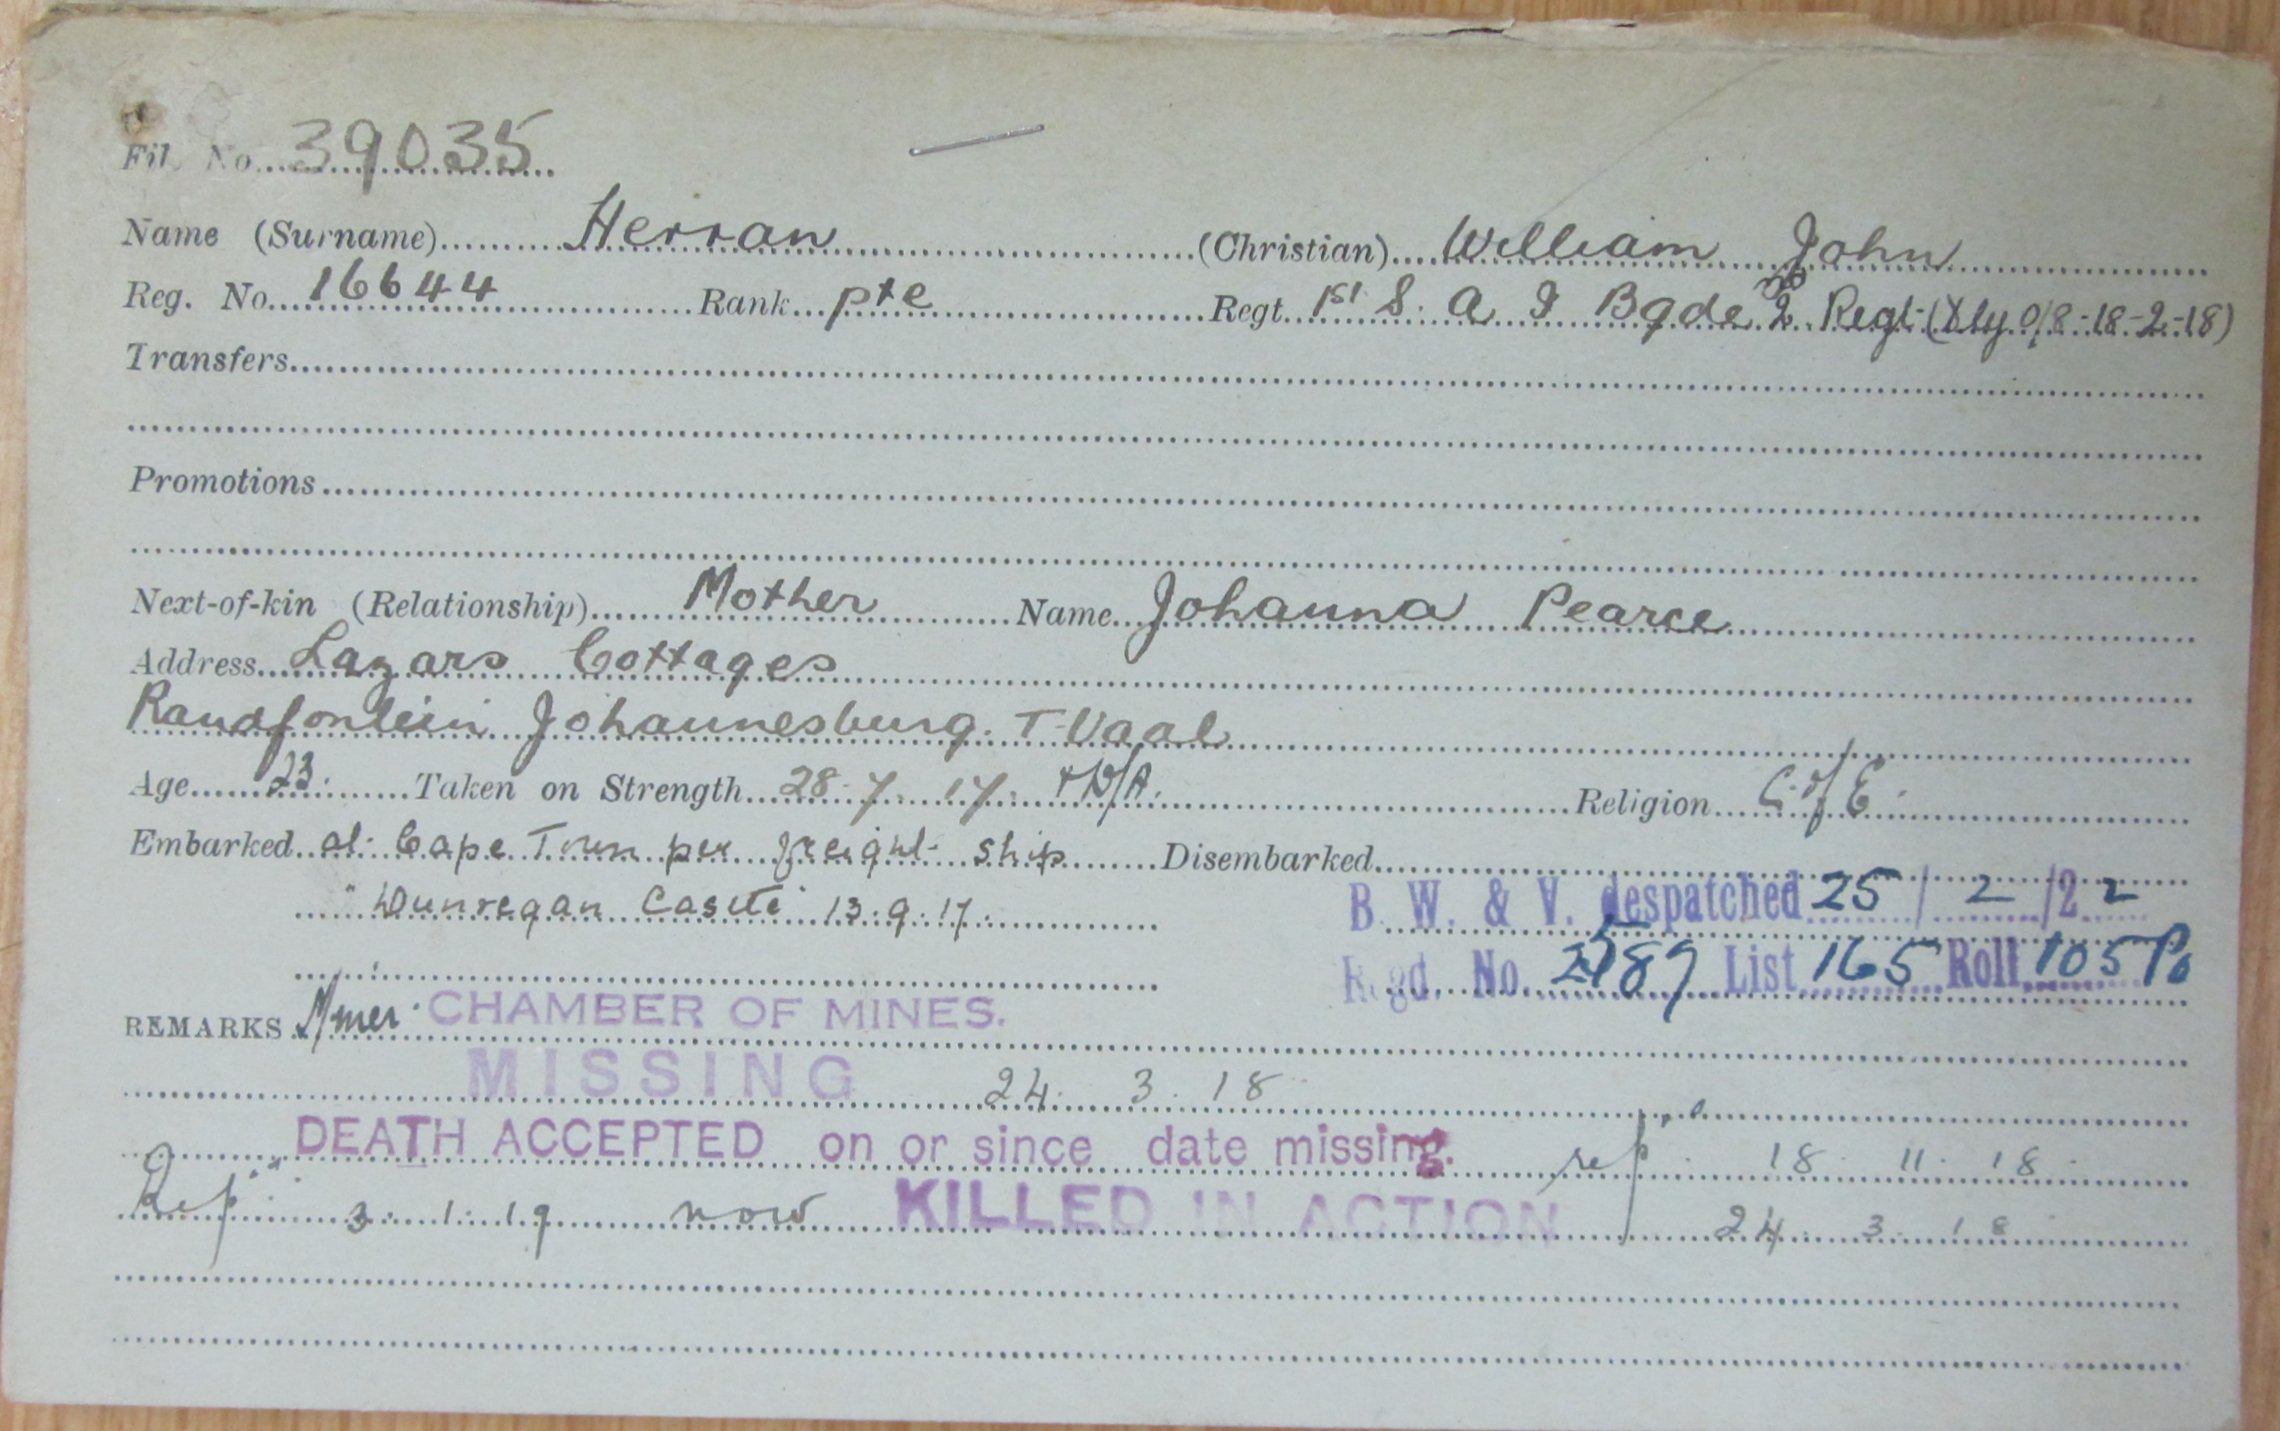 File No. 39035
Name (Surname) Herran (Christian) William John
Reg. No. 16644 Rank pte Regt. 1st S. A I Bgde 2nd Regt (Xty O/S-18-2-18)
Transfers
Promotions
Next-of-kin (Relationship) Mother Name Johanna Pearce
Address Lazars Cottages
Randfontein Johannesburg. T-Vaal
Age 23. Taken on Strength 28.7.17. Religion C. of E.
Embarked at Cape Town per freight ship Disembarked
"Dunvegan Castle" 13.9.17.
B. W. & V. despatched 25/2/22
Regd. No. List 165 Roll 105 Po
REMARKS Miner. CHAMBER OF MINES.
MISSING 24. 3. 18
DEATH ACCEPTED on or since date missing. rep. 18. 11. 18.
Rep. 3.1.19 now KILLED IN ACTION 24. 3. 18